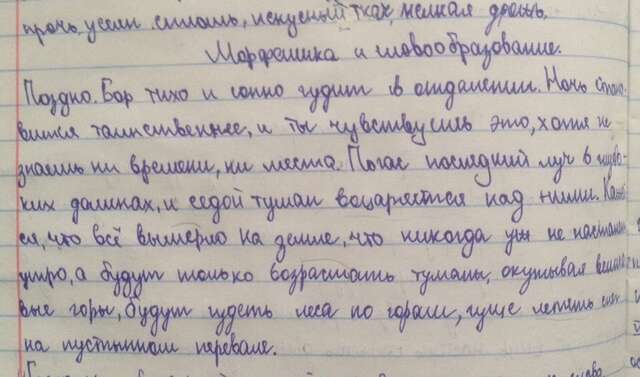 прочь, усеян сплошь, искусный ткач, мелкая дрожь.
Морфемика и словообразование.
Поздно. Бор тихо и сонно гудит в отдалении. Ночь стано-
вится таинственнее, и ты чувствуешь это, хотя не
знаешь ни времени, ни места. Погас последний луч в глубо-
ких долинах, и седой туман воцаряется над ними. Кажет
ся, что всё вымерло на земле, что никогда уж не настанет
утро, а будут только возрастать туманы, окутывая
вые горы, будут гудеть леса по горам, гуще лететь снег
на пустынном перевале.